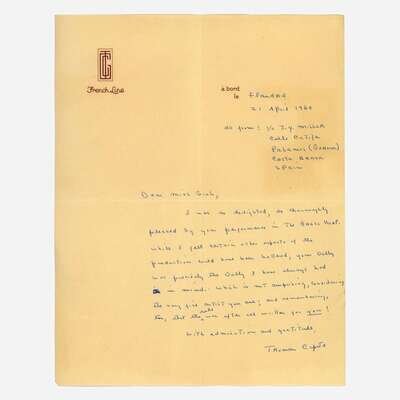 French Line
à bord
le Flandre
21 April 1960
As from: c/o J.Y. Millar
Calle Catifa
Palamos (Gerona)
Costa Brava
Spain
Dear Miss Gish,
I was so delighted, so thoroughly
pleased by your performance in The Grass Harp.
While I felt certain other aspects of the
production could have been bettered, your Dolly
was precisely the Dolly I have always had
in mind: which is not surprising, considering
the very fine artist you are; and remembering,
too, that the role was after all written for you!
With admiration and gratitude,
Truman Capote